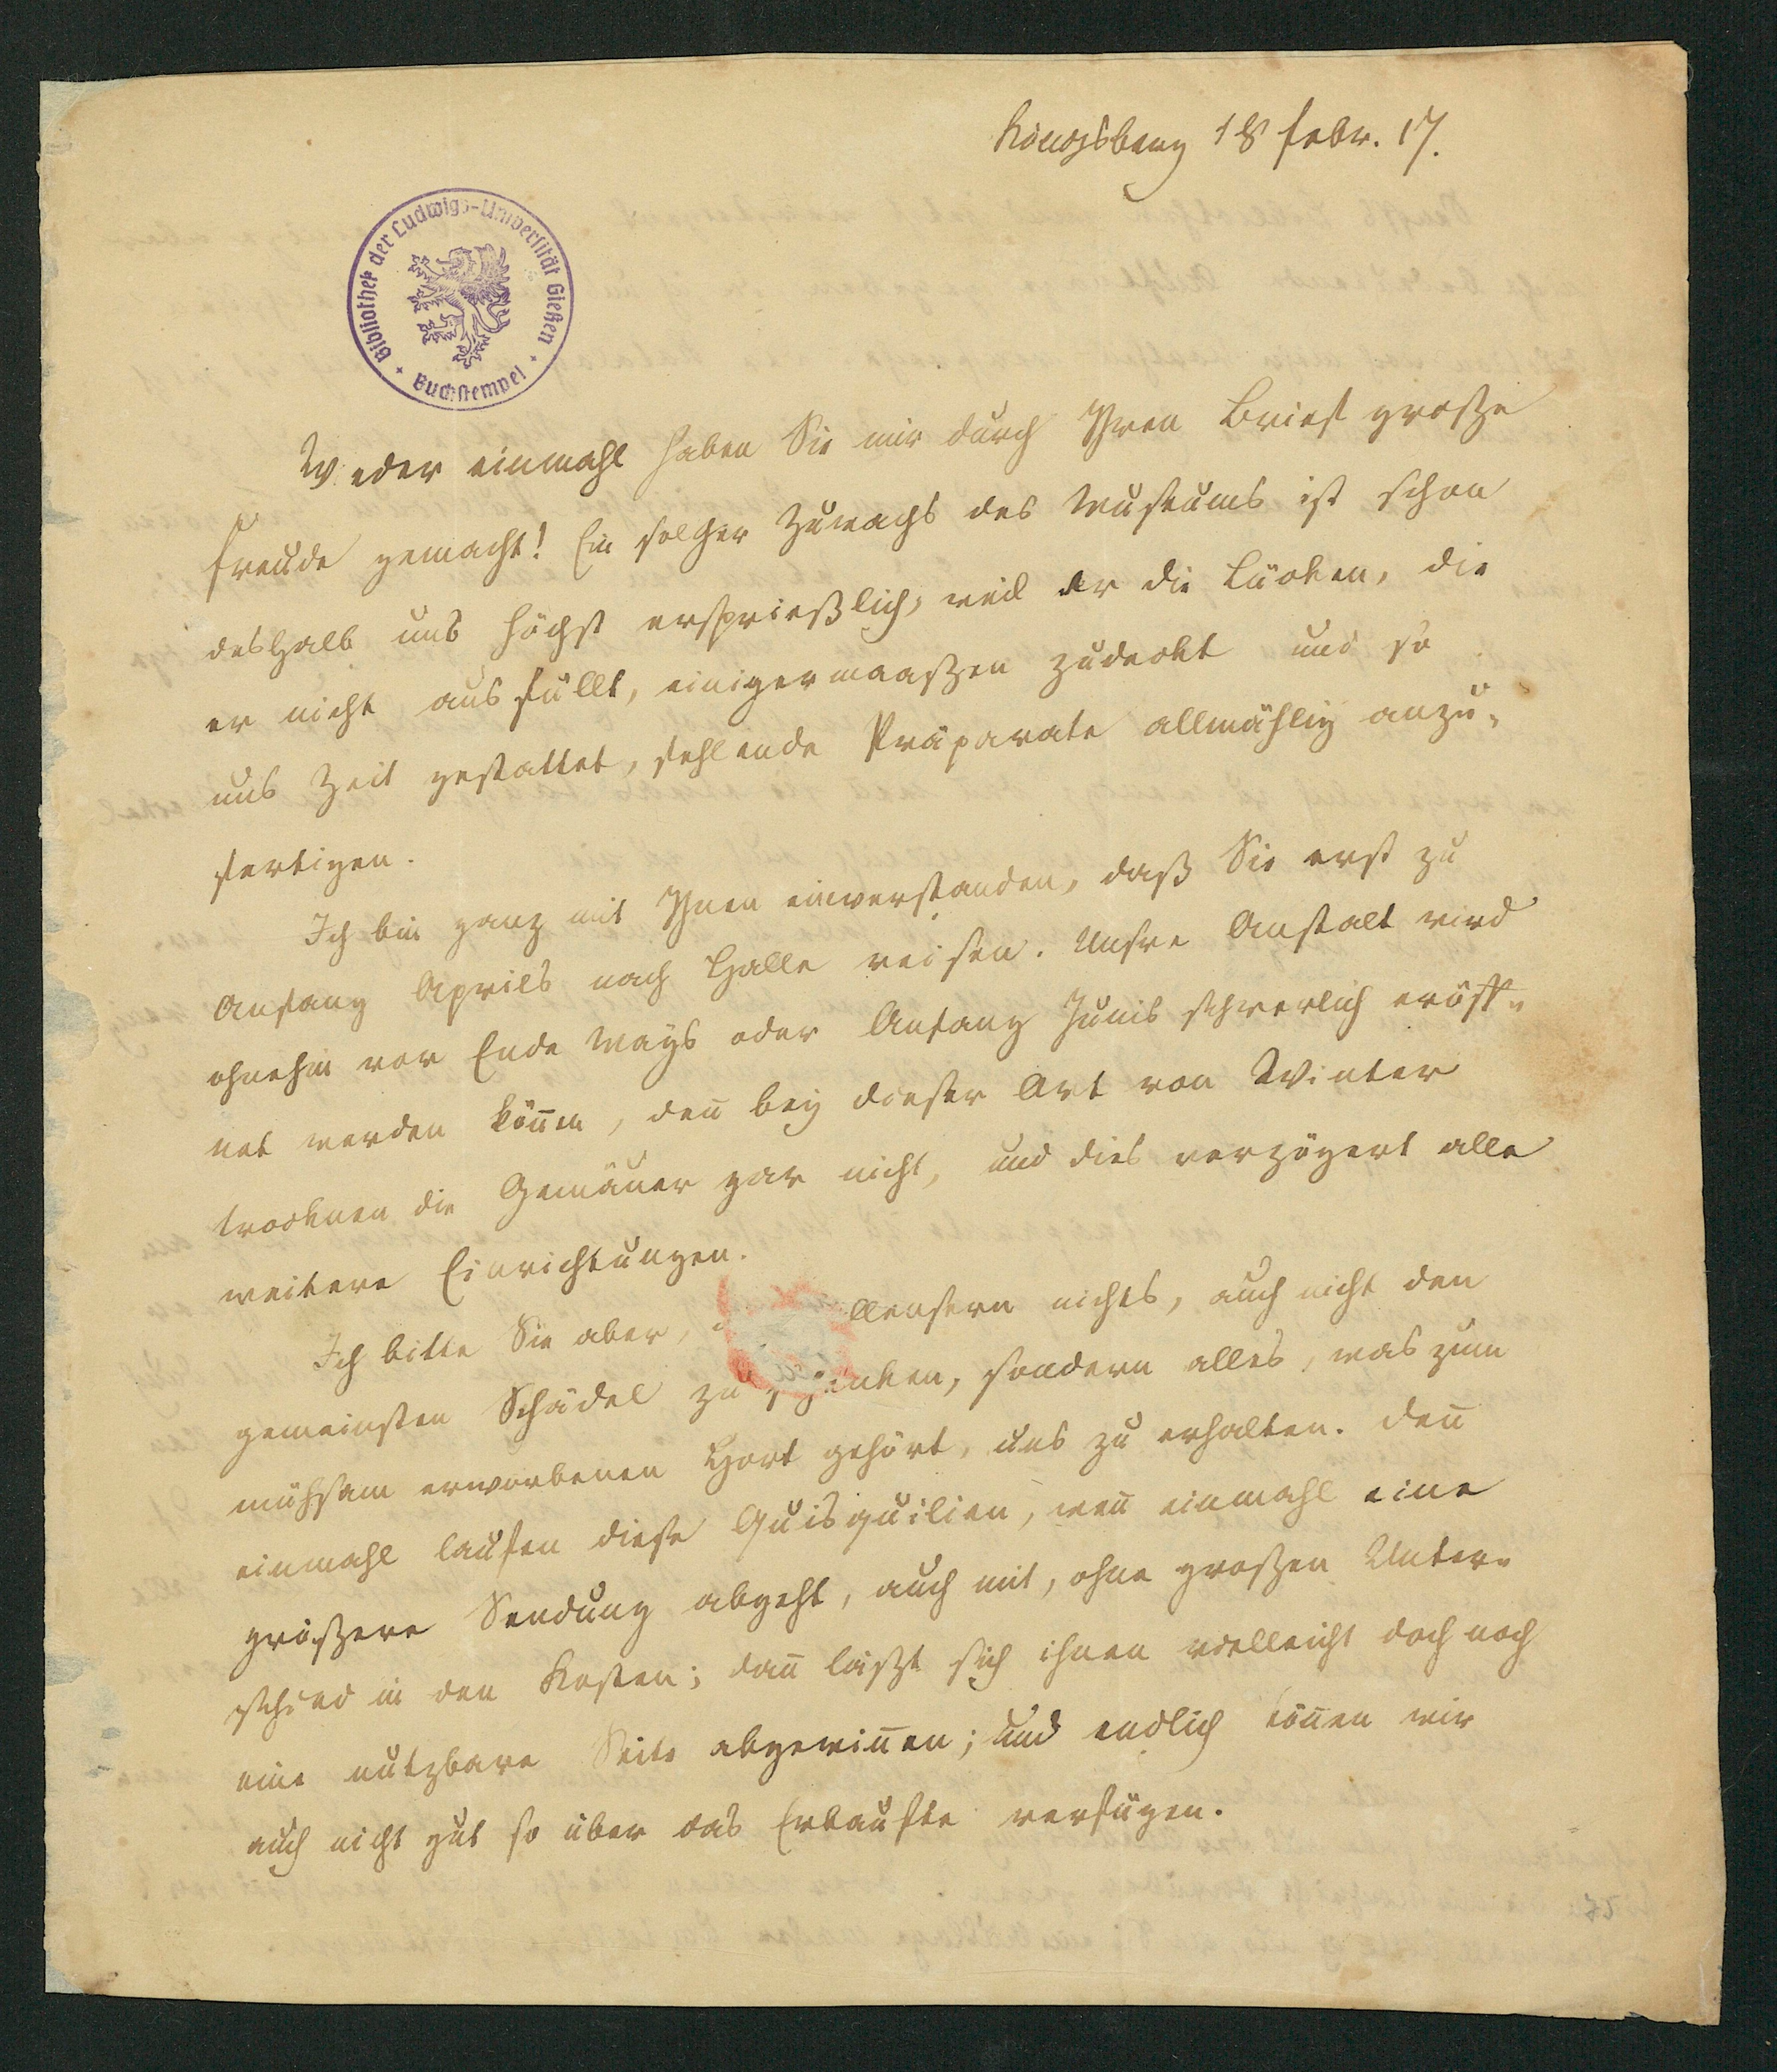 Königsberg 18 Febr. 17.
Bibliothek der Ludwigs-Universität Gießen
Buchstempel
Wieder einmahl haben Sie mir durch Ihren Brief große
Freude gemacht! Ein solcher Zuwachs des Museums ist schon
deshalb uns höchst ersprießlich, weil er die Lücken, die
er nicht ausfüllt, einigermaaßen zudeckt und so
uns Zeit gestattet, fehlende Präparate allmählig anzu-
fertigen.
Ich bin ganz mit Ihnen einverstanden, daß Sie erst zu
Anfang Aprils nach Halle reisen. Unsre Anstalt wird
ohnehin vor Ende Mays oder Anfang Junis schwerlich eröff-
net werden könen, den bey dieser Art von Winter
trocknen die Gemäuer gar nicht, und dies verzögert alle
weitere Einrichtungen.
Ich bitte Sie aber, llensern nichts, auch nicht den
gemeinsten Schädel zu schenken, sondern alles, was zum
mühsam erworbenen Hort gehört, uns zu erhalten. Den
einmahl laufen diese Quisquilien, wen einmahl eine
größere Sendung abgeht, auch mit, ohne großen Unter-
schied in den Kosten; dan läßt sich ihnen vielleicht doch noch
eine nutzbare Seite abgewinen; und endlich könen wir
auch nicht gut so über das Erkaufte verfügen.